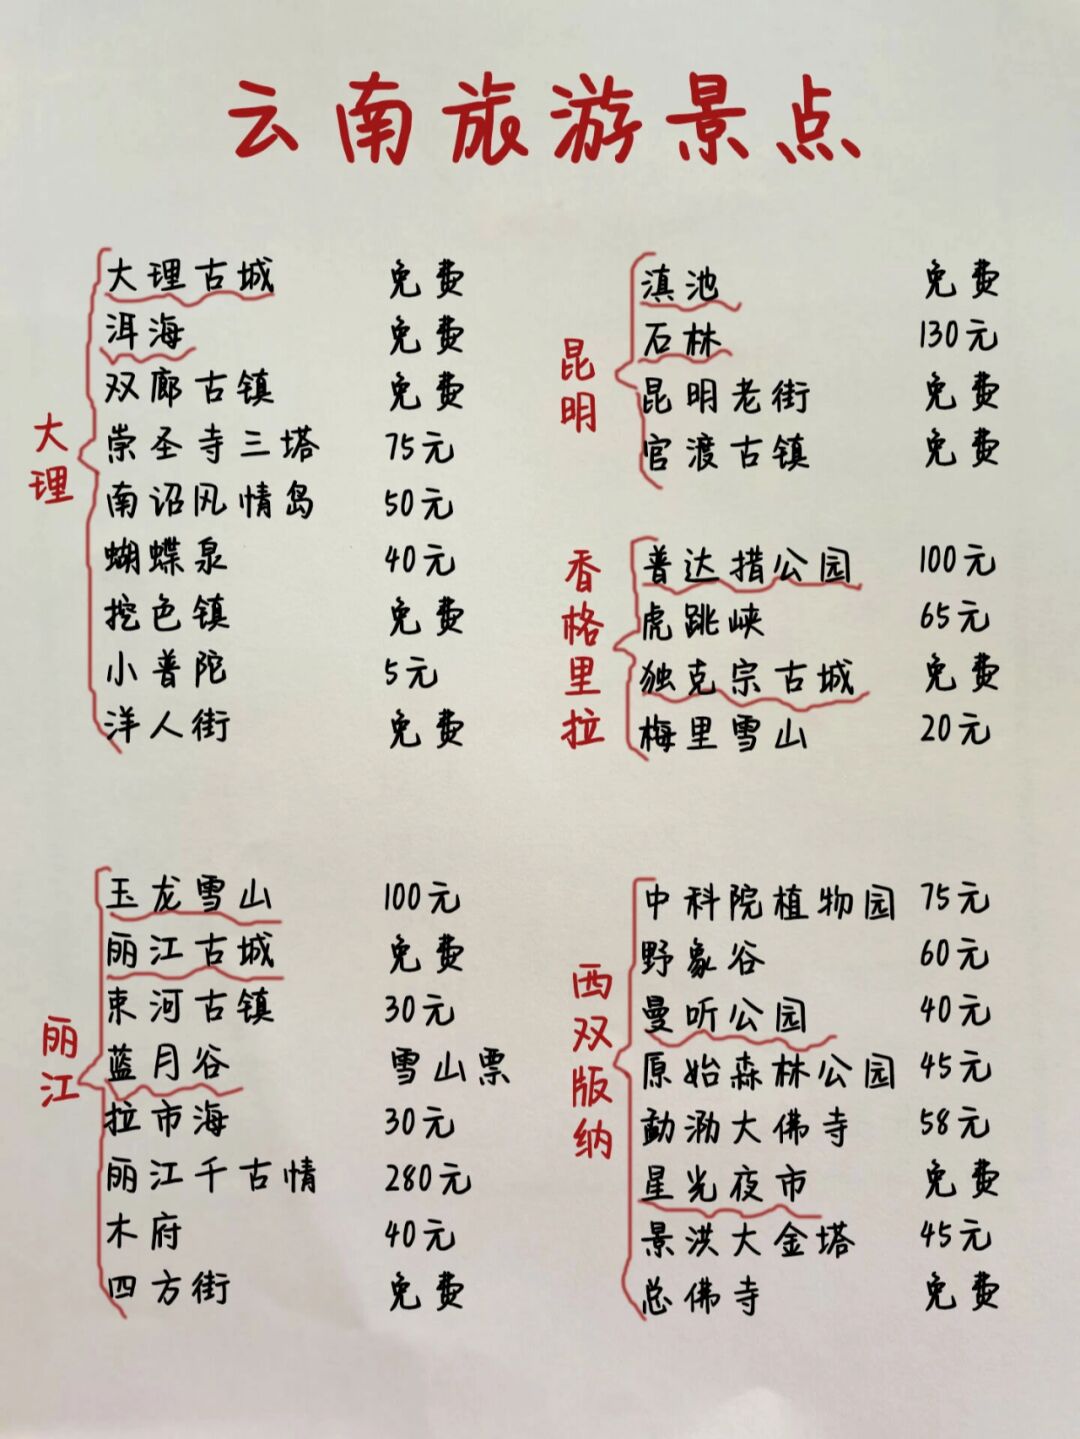 云南旅游景点
大理
大理古城 免费
洱海 免费
双廊古镇 免费
崇圣寺三塔 75元
南诏风情岛 50元
蝴蝶泉 40元
挖色镇 免费
小普陀 5元
洋人街 免费
昆明
滇池 免费
石林 130元
昆明老街 免费
官渡古镇 免费
香格里拉
普达措公园 100元
虎跳峡 65元
独克宗古城 免费
梅里雪山 20元
丽江
玉龙雪山 100元
丽江古城 免费
束河古镇 30元
蓝月谷 雪山票
拉市海 30元
丽江千古情 280元
木府 40元
四方街 免费
西双版纳
中科院植物园 75元
野象谷 60元
曼听公园 40元
原始森林公园 45元
勐泐大佛寺 58元
星光夜市 免费
景洪大金塔 45元
总佛寺 免费